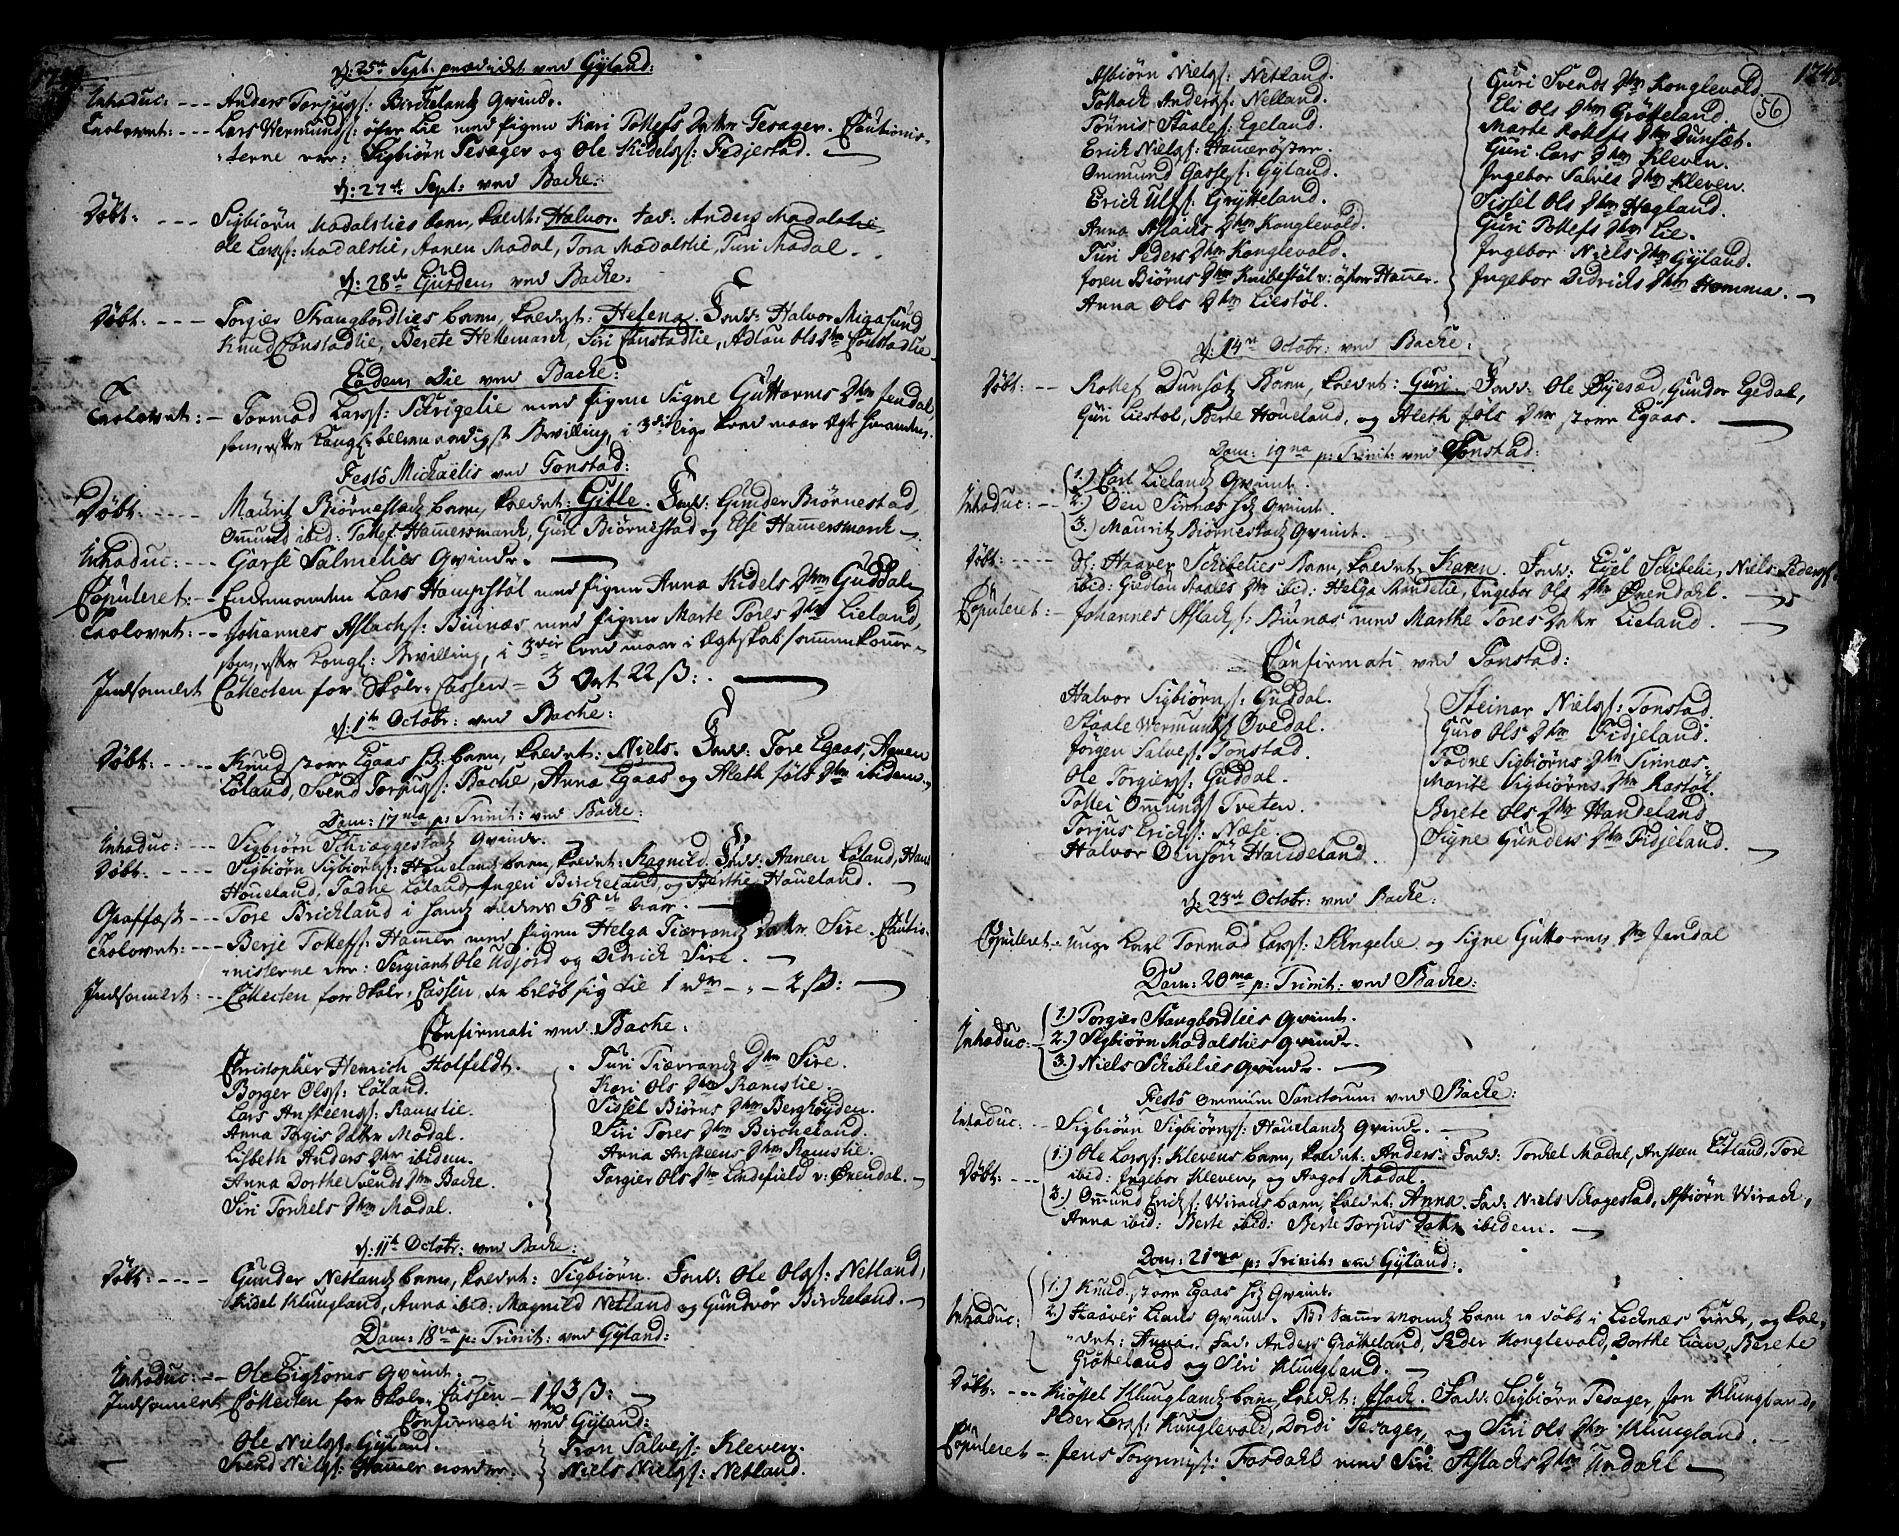 d: 25de Sept: prædicket ved Gyland:
Introduc: --- Anders Torjusß: Birchelands Qvinde.
Trolovet: --- Lars Wermundß: øfre Lie med Pigen Kari Tollefs Datter Tesager. Cautionis-
terne var: Sigbiørn Tesager og Ole Kidelsß: Fedjestad.
d: 27de Sept: ved Backe:
Døbt: --- Sigbiørn Madalslies barn, kaldet: Halvor. Fad: Anders Madalslie,
Ole Larsß: Madalslie, Aanen Madal, Tora Madalslie, Turi Madal.
d: 28de Ejusdem ved Backe:
Døbt: --- Torgies Strangbordlies barn, kaldet: Helena. Fadd: Halvor Migasund
Knud Constadlie, Berete Hellemarck, Siri Constadlie, Adlau Ols Dtter Constadlie
Eodem Die ved Backe:
Trolovet: - Tormod Larsß: Schrigelie med Pigen Signe Guttorms Dtter Jendal
som, efter Kongl: allernaadigst Bevilling, i 3die
Festo Michaëlis ved Tonstad:
Døbt: ---- Maurit Biørnestads barn, kaldet: Gitle. Fadd: Gunder Biørnestad,
Omund ibid: Tollef Hammersmarck, Guri Biørnestad og Else Hammersmarck
Introduc: --- Garse Salmelies Qvinde.
Copuleret: - Enkemanden Lars Hompstøl med Pigen Anna Kidels Dtter Guddal
Trolovet: -- Johannes Aslachß: Birnæs med Pigen Marte Tores Dtter Lieland,
som, efter Kongl: Bevilling, i 3die Leed maae i Ægteskab sammenkomme
Indsamlet Collecten for Skole-Cassen - 3 Ort 22 ß:
d: 1te Octobr: ved Backe:
Døbt: ---- Knud store Egaas barn, kaldet: Niels. Fadd: Tore Egaas, Aanen
Løland, Svend Torjusß: Backe, Anna Egaas og Aleth Føls Dtter ibidem.
Dom: 17ma p: Trinit: ved Backe:
Introduc: --- Sigbiørn Schreggestads Qvinde.
Døbt: ---- Sigbiørn Sigbiørnß: Houelands barn, kaldet: Ragnild. Fadd: Aanen Løland, Hans
Houeland, Tadne Løland, Ingeri Bircheland, og Berthe Houeland.
Graffæst --- Tore Brickland i hands alders 58de Aar.
Trolovet: --- Berje Tollefß: Hamer med Pigen Helga Tiærrands Datter Sire. Cautio-
nisterne var: Sergiant Ole Udjord og Didrick Sire.
Indsamlet: -- Collecten for Skole-Cassen, der beløb sig til 1 rdr -,- 2 ß:
Confirmati ved Backe:
Christopher Henrich Holfeldt.
Borger Olsß: Løland.
Lars Ansteensß: Ramslie.
Anna Torgis Datter Madal.
Lisbeth Anders Dtter ibidem.
Anna Dorthe Svends Dtter Backe.
Siri Torkels Dtter Madal.
Turi Tiærrands Dtter Sire.
Kari Ols Dtter Ramslie.
Sissel Biørns Dtter Berghøyden.
Siri Tores Dtter Bircheland.
Anna Ansteens Dtter Ramslie.
Torgier Ols Dtter Lindefield v: Ørendal.
d: 11te Octobr: ved Backe:
Døbt: ---- Gunder Netlands barn, kaldet: Sigbiørn. Fadd: Ole Olsß: Netland,
Kidel Klungland, Anna ibid: Magnild Netland og Gundvor Bircheland.
Dom: 18va p: Trinit: ved Gyland:
Introduc: -- Ole Eighoms Qvinde.
Indsamlet Collecten for Skole-Cassen - 1 # 3 ß:
Confirmati ved Gyland:
Ole Nielsß: Gyland.
Svend Nielsß: Hammer nordre.
Tron Salvesß: Kleven.
Niels Nielsß: Netland.
1748
56
Asbiørn Nielsß: Netland.
Tollack Andersß: Netland.
Tønnis Staalesß: Egeland.
Erick Nielsß: Hammer øster.
Ommund Gassesß: Gyland.
Erick Ulfsß: Grytteland.
Anna Aslachs Dtter Konglevold.
Turi Peders Dtter Konglevold.
Joren Biørns Dtter Knibestøl v: øster Hamer.
Anna Ols Dtter Liestøl.
Guri Svends Dtter Konglevold.
Eli Ols Dtter Grøtteland.
Marte Rollefs Dtter Dunset.
Guri Lars Dtter Kleven.
Ingebor Salves Dtter Kleven.
Sissel Ols Dtter Hegland.
Guri Tollefs Dtter Lie.
Ingebor Niels Dtter Gyland.
Ingebor Didricks Dtter Homma.
d: 14de Octobr: ved Backe:
Døbt: -- Rollef Dunsæts Barn, kaldet: Guri. Fadd: Ole Øyesad, Gundor Egedal,
Guri Liestøl, Berte Houeland, og Aleth Føls Dtter store Egaas.
Dom: 19na p: Trinit: ved Tonstad:
Introduc: -- 1.) Carl Lielands Qvinde.
2.) Øen Sinnæs Qvinde.
3.) Mauritz Biørnestads Qvinde.
Døbt: ---- Haaver Schibelies Barn, kaldet: Karen. Fadd: Eiel Schibelie, Niels Pedersß
ibid: Gudlau Staales Dtter ibid: Helga Mandelie, Ingebor Ols Dtter Ørendahl.
Copuleret: - Johannes Aslachß: Birnæs med Marthe Tores Datter Lieland.
Confirmati ved Tonstad:
Halvor Sigbiørnß: Guddal.
Staale Wermundß Ovedal.
Jørgen Salvesß: Tonstad.
Ole Torgiersß: Guddal.
Tollei Ommundß Tveten.
Torjus Erichsß: Næse.
Halvor Oensøn Handeland.
Steinar Nielsß: Tonstad
Guro Ols Dtter Fidjeland.
Tadne Sigbiørns Dtter Sinnæs.
Marite Sigbiørns Dtter Røstøl.
Berete Ols Dtter Handeland.
Signe Gunders Dtter Fidjeland.
d: 23de Octobr: ved Backe:
Copuleret - unge Karl Tormod Larsß: Skrigelie og Signe Guttorms Dtter Jendal
Dom: 20ma p: Trinit: ved Backe:
Introduc: - 1.) Torgier Stangbordlies Qvinde.
2.) Sigbiørn Madalslies Qvinde.
3.) Niels Schibelies Qvinde.
Festo omnium Sanctorum ved Backe:
Introduc: -- Sigbiørn Sigbiørnß: Houelands Qvinde.
Døbt: --- 1.) Ole Larsß: Klevens barn, kaldet: Anders. Fadd: Torkel Madal, Ansteen Eitland, Tore
ibid: Ingebor Kleven, og Aagot Madal.
2.) Ommund Erichß: Wirachs barn, kaldet: Anna. Fad: Niels Schagestad, Asbiørn Wirack,
Anna ibid: Berte ibid: Berte Torjus Datter ibidem.
Dom: 21ma p: Trinit: ved Gyland:
Introduc: 1.) Knud store Egaas Qvinde.
2.) Haaver Lians Qvinde. NB: samme Mands barn er døbt i Lechnæs Kircke, og kal-
det: Anna. Fad: Anders Grøtteland, Peder Konglevold, Dorthe Lian, Berete
Grøtteland og Siri Klungland.
Døbt: --- Kiøstel Klunglands barn, kaldet: Isack. Fadd: Sigbiørn Tesager, Jon Klungland,
Peder Larsß: Kunglevold, Dordi Tesager, og Siri Ols Dtter Klungland.
Copuleret - Jens Torgrimsß: Fardahl med Siri Aslachs Dtter Undahl